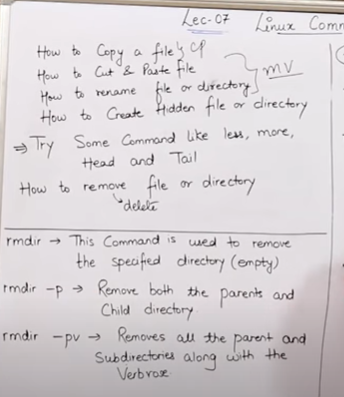 Lec-07 Linux Comm
How to Copy a file } CP
How to Cut & Paste file
How to rename file or directory } mv
How to Create Hidden file or directory
⇒ Try Some Command like less, more,
Head and Tail
How to remove file or directory
↳ delete
rmdir → This Command is used to remove
the specified directory (empty)
rmdir -p → Remove both the parents and
Child directory
rmdir -pv → Removes all the parent and
Subdirectories along with the
Verbrose.